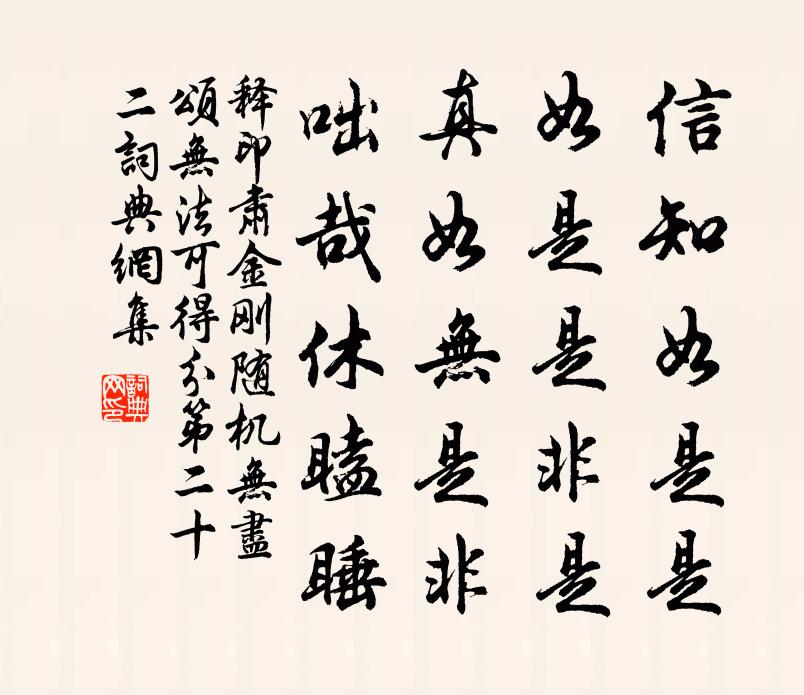 信知如是是
如是是非是
真如無是非
咄哉休瞌睡
释印肃金刚随机無盡
頌無法可得分第二十
二詞典網集
詞典网印